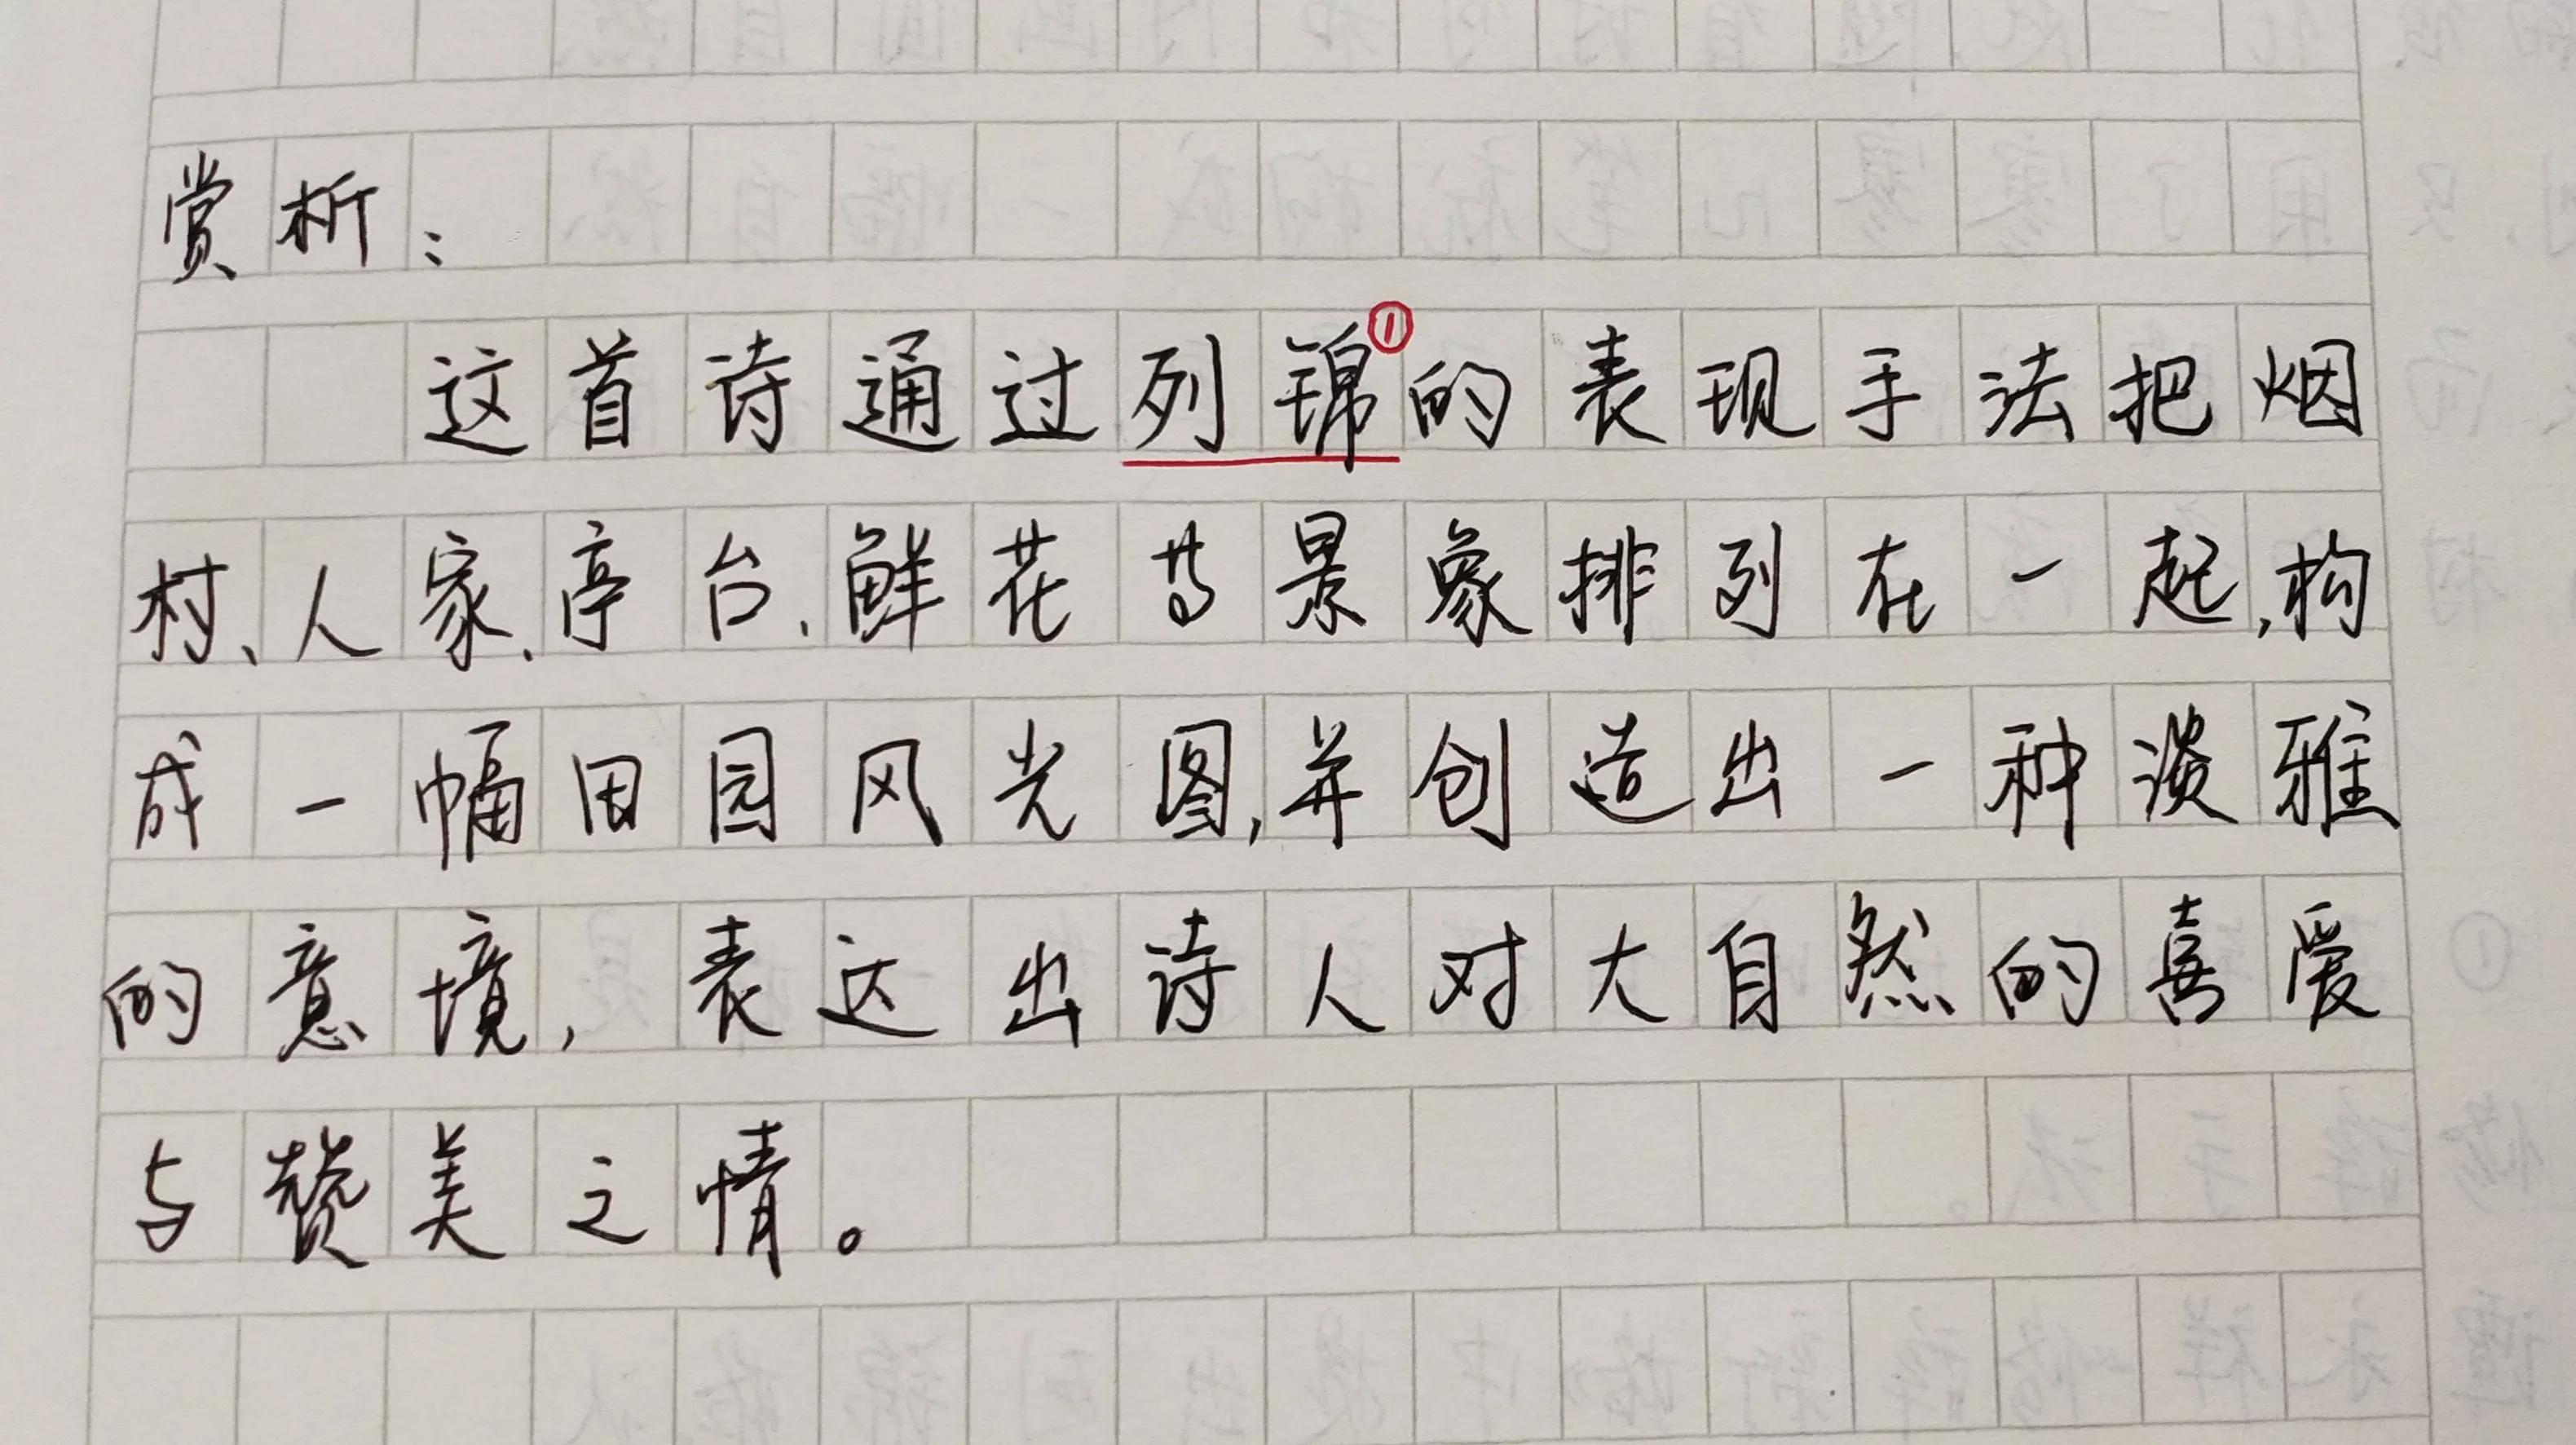 赏析：
这首诗通过列锦①的表现手法把烟
村、人家、亭台、鲜花等景象排列在一起,构
成一幅田园风光图,并创造出一种淡雅
的意境,表达出诗人对大自然的喜爱
与赞美之情。